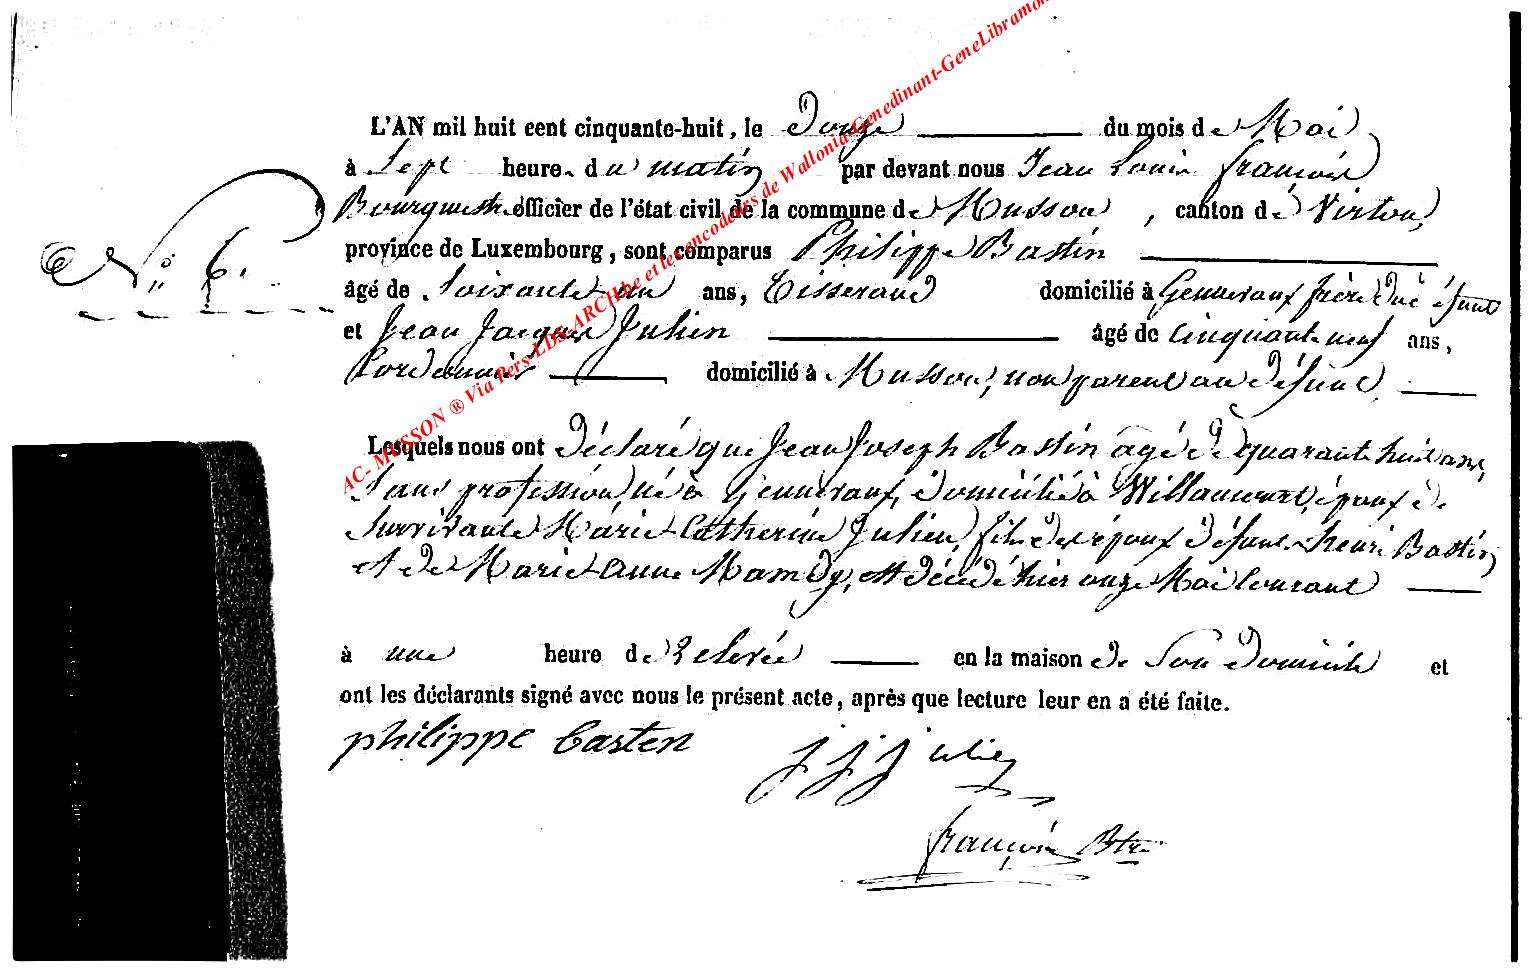 L'AN mil huit cent cinquante-huit, le Douze du mois de Mai
à Sept heures du matin par devant nous Jean Louis françois
Bourguest officier de l'état civil de la commune de Musson, canton de Virton,
N° 6.
province de Luxembourg, sont comparus Philippe Bastin
âgé de Soixante un ans, Tisserand domicilié à Gennevaux frère du défunt
et Jean Jacques Julien âgé de cinquante neuf ans,
Cordonnier domicilié à Musson, non parent au défunt,
Lesquels nous ont déclaré que Jean Joseph Bastin agé de quarante huit ans,
Sans profession, né à Gennevaux, domicilié à Willancourt, époux de
Survivante Marie Catherine Julien, fils des époux défunts henri Bastin
et de Marie Anne Mamdy, est décédé hier onze Mai Courant
à une heure de relevée en la maison de Son domicile et
ont les déclarants signé avec nous le présent acte, après que lecture leur en a été faite.
philippe basten
J J Julien
françois
AC- MUSSON ® Via Pers-LDS-ARCH.be et les encodeurs de Wallonia-Genedinant-GeneLibramon